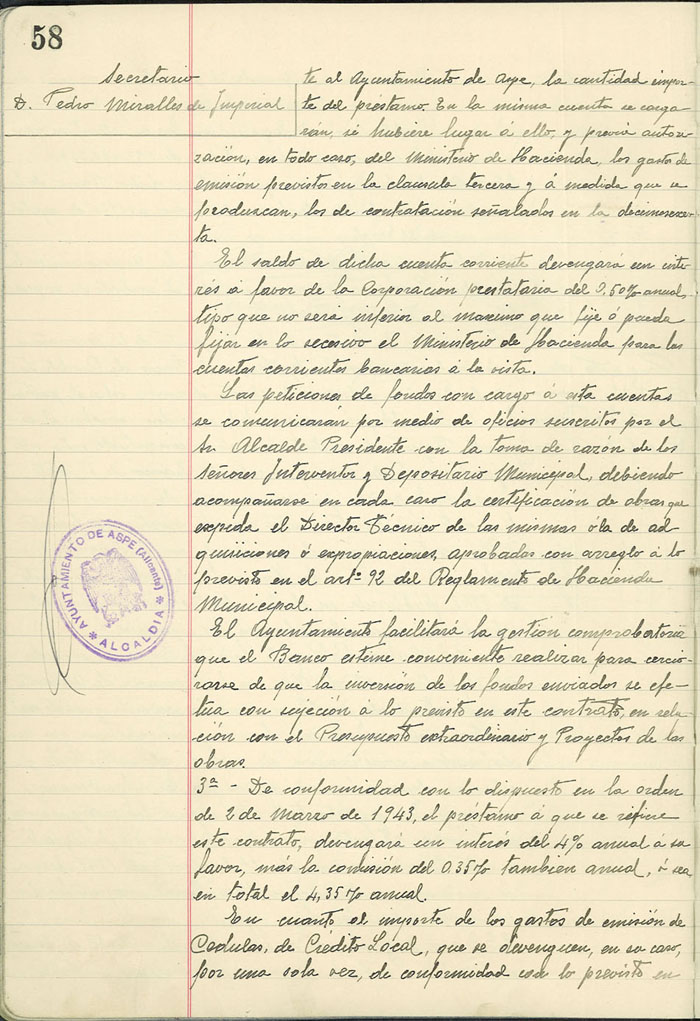 58
Secretario
D. Pedro Miralles de Imperial
te al Ayuntamiento de Aspe, la cantidad impor-
te del préstamo. En la misma cuenta se carga-
rán, si hubiere lugar á ello, y previa autori-
zación, en todo caso, del Ministerio de Hacienda, los gastos de
emisión previstos en la clausula tercera y á medida que se
produzcan, los de contratación señalados en la decimosex-
ta.
El saldo de dicha cuenta corriente devengará un inte-
rés á favor de la Corporación prestataria del 0,50% anual,
tipo que no sera inferior al maximo que fije ó pueda
fijar en lo secesivo el Ministerio de Hacienda para las
cuentas corrientes bancarias á la vista.
Las peticiones de fondos con cargo á esta cuentas
se comunicarán por medio de oficios suscritos por el
Sr. Alcalde Presidente con la toma de razón de los
señores Interventor y Depositario Municipal, debiendo
acompañarse en cada caso la certificación de obras que
expida el Director Técnico de las mismas ó la de ad-
quisiciones ó expropiaciones, aprobadas con arreglo á lo
previsto en el artº 92 del Reglamento de Hacienda
Municipal.
El Ayuntamiento facilitará la gestión comprobatoria
que el Banco estime conveniente realizar para cercio-
rarse de que la inversión de los fondos enviados se efec-
túa con sujeción á lo previsto en este contrato, en rela-
ción con el Presupuesto extraordinario y Proyectos de las
obras.
3ª - De conformidad con lo dispuesto en la orden
de 2 de Marzo de 1943, el préstamo á que se refiere
este contrato, devengará un interés del 4% anual á su
favor, más la comisión del 0,35% tambien anual, ó sea
en total el 4,35% anual.
En cuanto al importe de los gastos de emisión de
Cedulas, de Crédito Local, que se devenguen, en su caso,
por una sola vez, de conformidad con lo previsto en
AYUNTAMIENTO DE ASPE (Alicante)
* ALCALDIA *